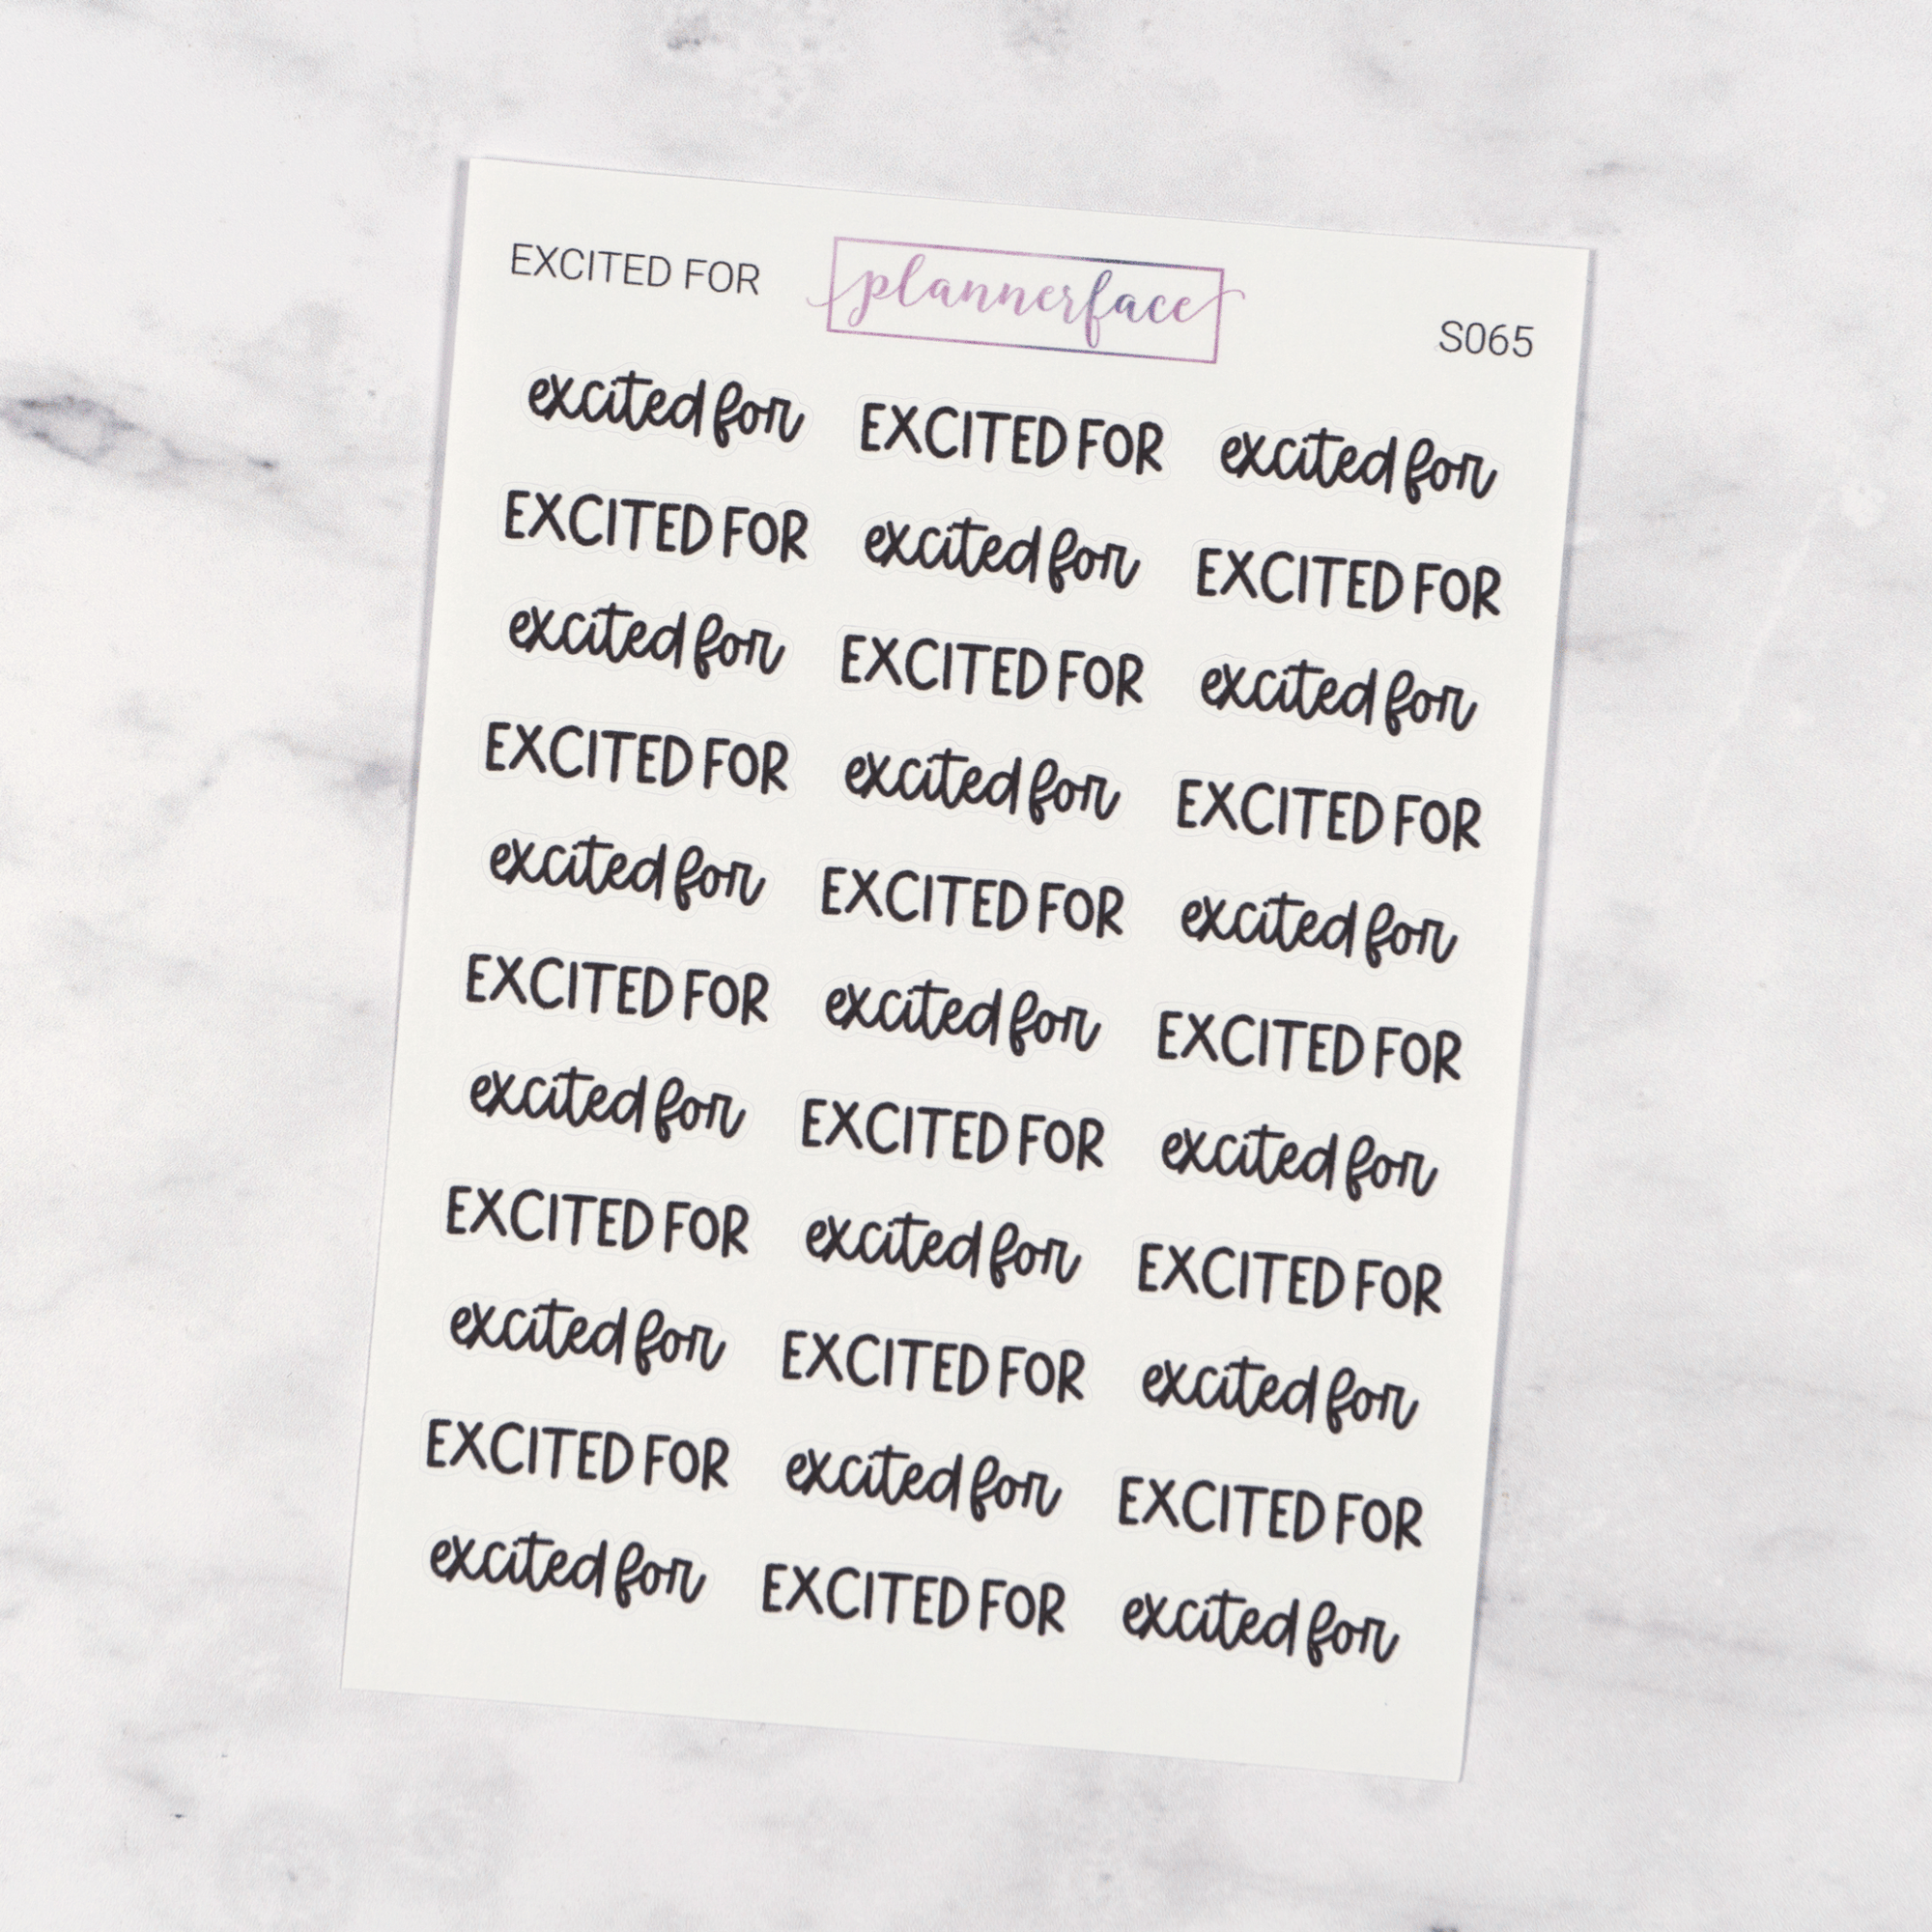 EXCITED FOR plannerface S065
excited for EXCITED FOR excited for
EXCITED FOR excited for EXCITED FOR
excited for EXCITED FOR excited for
EXCITED FOR excited for EXCITED FOR
excited for EXCITED FOR excited for
EXCITED FOR excited for EXCITED FOR
excited for EXCITED FOR excited for
EXCITED FOR excited for EXCITED FOR
excited for EXCITED FOR excited for
EXCITED FOR excited for EXCITED FOR
excited for EXCITED FOR excited for